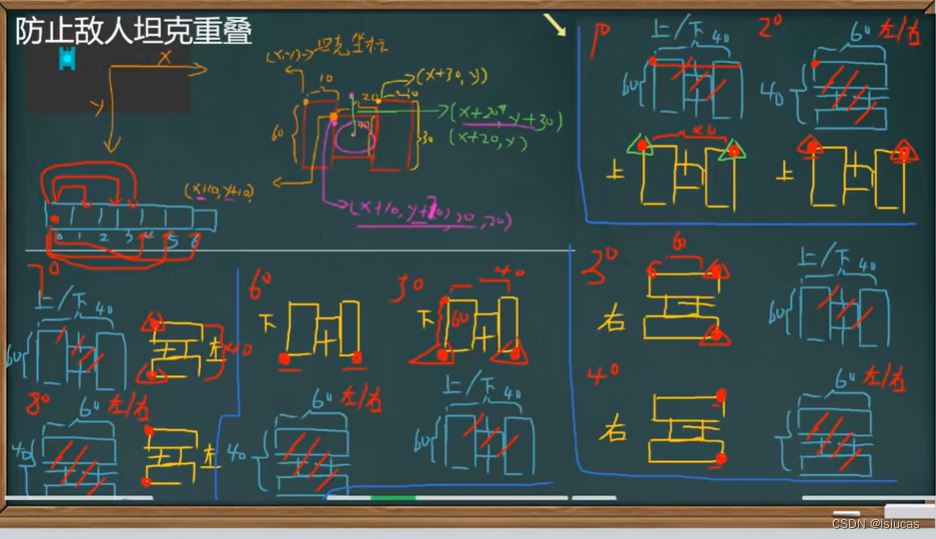 防止敌人坦克重叠
X
Y
(x,y)→坦克坐标
10
20
10
(x+30, y)
60
30
(x+20, y+30)
(x+20, y)
(x+10, y+10)
0 1 2 3 4 5 6
1°
上/下
40
60
上
2°
60 左/右
40
上
3°
60
右
上/下
40
60
4°
右
60 左/右
40
7°
上/下
40
60
左
40
8°
60 左/右
40
左
6°
下
60 左/右
40
下
40
60
上/下
40
60
CSDN @lslucas